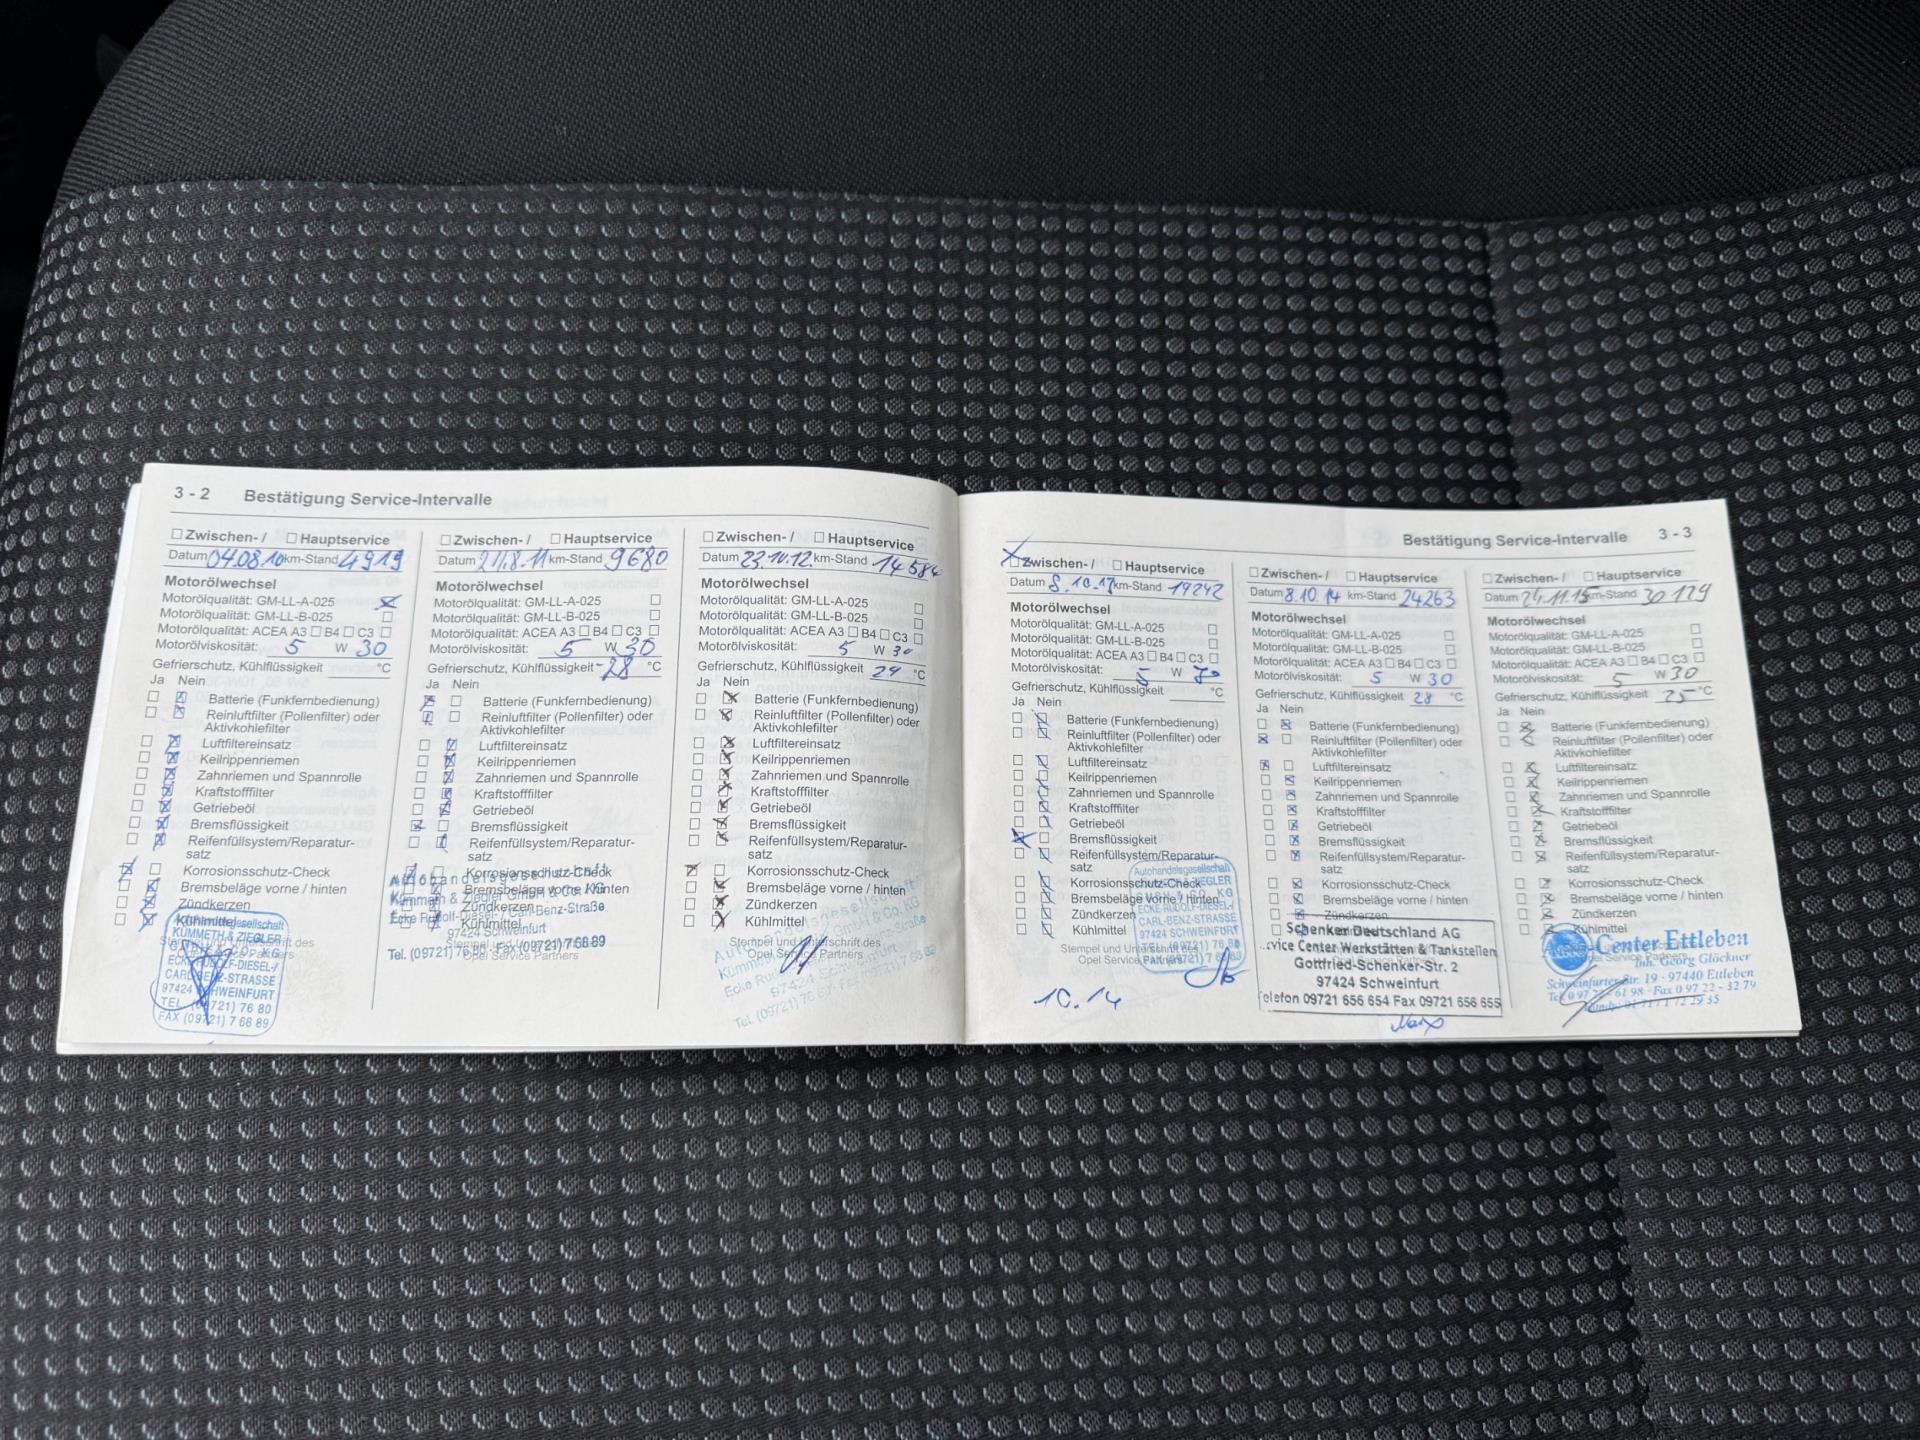 3 - 2 Bestätigung Service-Intervalle
☐ Zwischen- / ☐ Hauptservice
Datum 04.08.10 km-Stand 4919
Motorölwechsel
Motorölqualität: GM-LL-A-025 ☒
Motorölqualität: GM-LL-B-025 ☐
Motorölqualität: ACEA A3 ☐ B4 ☐ C3 ☐
Motorölviskosität: 5 W 30
Gefrierschutz, Kühlflüssigkeit °C
Ja Nein
☐ ☒ Batterie (Funkfernbedienung)
☐ ☒ Reinluftfilter (Pollenfilter) oder
Aktivkohlefilter
☐ ☒ Luftfiltereinsatz
☐ ☒ Keilrippenriemen
☐ ☒ Zahnriemen und Spannrolle
☐ ☒ Kraftstofffilter
☐ ☒ Getriebeöl
☐ ☒ Bremsflüssigkeit
☐ ☒ Reifenfüllsystem/Reparatur-
satz
☒ ☐ Korrosionsschutz-Check
☐ ☒ Bremsbeläge vorne / hinten
☐ ☒ Zündkerzen
☐ ☒ Kühlmittel
Autohandelsgesellschaft
KÜMMETH & ZIEGLER
GMBH & CO. KG
ECKE RUDOLF-DIESEL-/
CARL-BENZ-STRASSE
97424 SCHWEINFURT
TEL. (09721) 76 80
FAX (09721) 7 68 89
☐ Zwischen- / ☐ Hauptservice
Datum 8.11 km-Stand 9680
Motorölwechsel
Motorölqualität: GM-LL-A-025 ☐
Motorölqualität: GM-LL-B-025 ☐
Motorölqualität: ACEA A3 ☐ B4 ☐ C3 ☐
Motorölviskosität: 5 W 30
Gefrierschutz, Kühlflüssigkeit -28 °C
Ja Nein
☒ ☐ Batterie (Funkfernbedienung)
☒ ☐ Reinluftfilter (Pollenfilter) oder
Aktivkohlefilter
☐ ☒ Luftfiltereinsatz
☐ ☒ Keilrippenriemen
☐ ☒ Zahnriemen und Spannrolle
☐ ☒ Kraftstofffilter
☐ ☒ Getriebeöl
☒ ☐ Bremsflüssigkeit
☐ ☒ Reifenfüllsystem/Reparatur-
satz
☒ ☐ Korrosionsschutz-Check
☐ ☒ Bremsbeläge vorne / hinten
☐ ☒ Zündkerzen
☐ ☒ Kühlmittel
Stempel und Unterschrift des
Opel Service Partners
Autohandelsgesellschaft
Kümmeth & Ziegler GmbH & Co. KG
Ecke Rudolf-Diesel-/ Carl-Benz-Straße
97424 Schweinfurt
Tel. (09721) 76 80 · Fax (09721) 7 68 89
☐ Zwischen- / ☐ Hauptservice
Datum 23.10.12 km-Stand 14584
Motorölwechsel
Motorölqualität: GM-LL-A-025 ☐
Motorölqualität: GM-LL-B-025 ☐
Motorölqualität: ACEA A3 ☐ B4 ☐ C3 ☐
Motorölviskosität: 5 W 30
Gefrierschutz, Kühlflüssigkeit 29 °C
Ja Nein
☐ ☒ Batterie (Funkfernbedienung)
☐ ☒ Reinluftfilter (Pollenfilter) oder
Aktivkohlefilter
☐ ☒ Luftfiltereinsatz
☐ ☒ Keilrippenriemen
☐ ☒ Zahnriemen und Spannrolle
☐ ☒ Kraftstofffilter
☐ ☒ Getriebeöl
☐ ☒ Bremsflüssigkeit
☐ ☒ Reifenfüllsystem/Reparatur-
satz
☒ ☐ Korrosionsschutz-Check
☐ ☒ Bremsbeläge vorne / hinten
☐ ☒ Zündkerzen
☐ ☒ Kühlmittel
Stempel und Unterschrift des
Opel Service Partners
Autohandelsgesellschaft
Kümmeth & Ziegler GmbH & Co. KG
Ecke Rudolf-Diesel-/ Carl-Benz-Straße
97424 Schweinfurt
Tel. (09721) 76 80 · Fax (09721) 7 68 89
Bestätigung Service-Intervalle 3 - 3
☒ Zwischen- / ☐ Hauptservice
Datum 8.10.13 km-Stand 19242
Motorölwechsel
Motorölqualität: GM-LL-A-025 ☐
Motorölqualität: GM-LL-B-025 ☐
Motorölqualität: ACEA A3 ☐ B4 ☐ C3 ☐
Motorölviskosität: 5 W 30
Gefrierschutz, Kühlflüssigkeit °C
Ja Nein
☐ ☒ Batterie (Funkfernbedienung)
☐ ☒ Reinluftfilter (Pollenfilter) oder
Aktivkohlefilter
☐ ☒ Luftfiltereinsatz
☐ ☒ Keilrippenriemen
☐ ☒ Zahnriemen und Spannrolle
☐ ☒ Kraftstofffilter
☐ ☒ Getriebeöl
☒ ☐ Bremsflüssigkeit
☐ ☒ Reifenfüllsystem/Reparatur-
satz
☐ ☒ Korrosionsschutz-Check
☐ ☒ Bremsbeläge vorne / hinten
☐ ☒ Zündkerzen
☐ ☒ Kühlmittel
Stempel und Unterschrift des
Opel Service Partners
Autohandelsgesellschaft
KÜMMETH & ZIEGLER
GMBH & CO. KG
ECKE RUDOLF-DIESEL-/
CARL-BENZ-STRASSE
97424 SCHWEINFURT
TEL. (09721) 76 80
FAX (09721) 7 68 89
10.14
☐ Zwischen- / ☐ Hauptservice
Datum 8.10.14 km-Stand 24263
Motorölwechsel
Motorölqualität: GM-LL-A-025 ☐
Motorölqualität: GM-LL-B-025 ☐
Motorölqualität: ACEA A3 ☐ B4 ☐ C3 ☐
Motorölviskosität: 5 W 30
Gefrierschutz, Kühlflüssigkeit 28 °C
Ja Nein
☐ ☒ Batterie (Funkfernbedienung)
☒ ☐ Reinluftfilter (Pollenfilter) oder
Aktivkohlefilter
☒ ☐ Luftfiltereinsatz
☐ ☒ Keilrippenriemen
☐ ☒ Zahnriemen und Spannrolle
☐ ☒ Kraftstofffilter
☐ ☒ Getriebeöl
☐ ☒ Bremsflüssigkeit
☐ ☒ Reifenfüllsystem/Reparatur-
satz
☐ ☒ Korrosionsschutz-Check
☐ ☒ Bremsbeläge vorne / hinten
☐ ☒ Zündkerzen
Schenker Deutschland AG
Service Center Werkstätten & Tankstellen
Gottfried-Schenker-Str. 2
97424 Schweinfurt
Telefon 09721 656 654 Fax 09721 656 655
☐ Zwischen- / ☐ Hauptservice
Datum 24.11.15 km-Stand 30129
Motorölwechsel
Motorölqualität: GM-LL-A-025 ☐
Motorölqualität: GM-LL-B-025 ☐
Motorölqualität: ACEA A3 ☐ B4 ☐ C3 ☐
Motorölviskosität: 5 W 30
Gefrierschutz, Kühlflüssigkeit 25 °C
Ja Nein
☐ ☒ Batterie (Funkfernbedienung)
☐ ☒ Reinluftfilter (Pollenfilter) oder
Aktivkohlefilter
☐ ☒ Luftfiltereinsatz
☐ ☒ Keilrippenriemen
☐ ☒ Zahnriemen und Spannrolle
☐ ☒ Kraftstofffilter
☐ ☒ Getriebeöl
☐ ☒ Bremsflüssigkeit
☐ ☒ Reifenfüllsystem/Reparatur-
satz
☐ ☒ Korrosionsschutz-Check
☐ ☒ Bremsbeläge vorne / hinten
☐ ☒ Zündkerzen
☐ ☒ Kühlmittel
Center Ettleben
Inh. Georg Glöckner
Schweinfurter Str. 19 · 97440 Ettleben
Fax 0 97 22 - 32 79